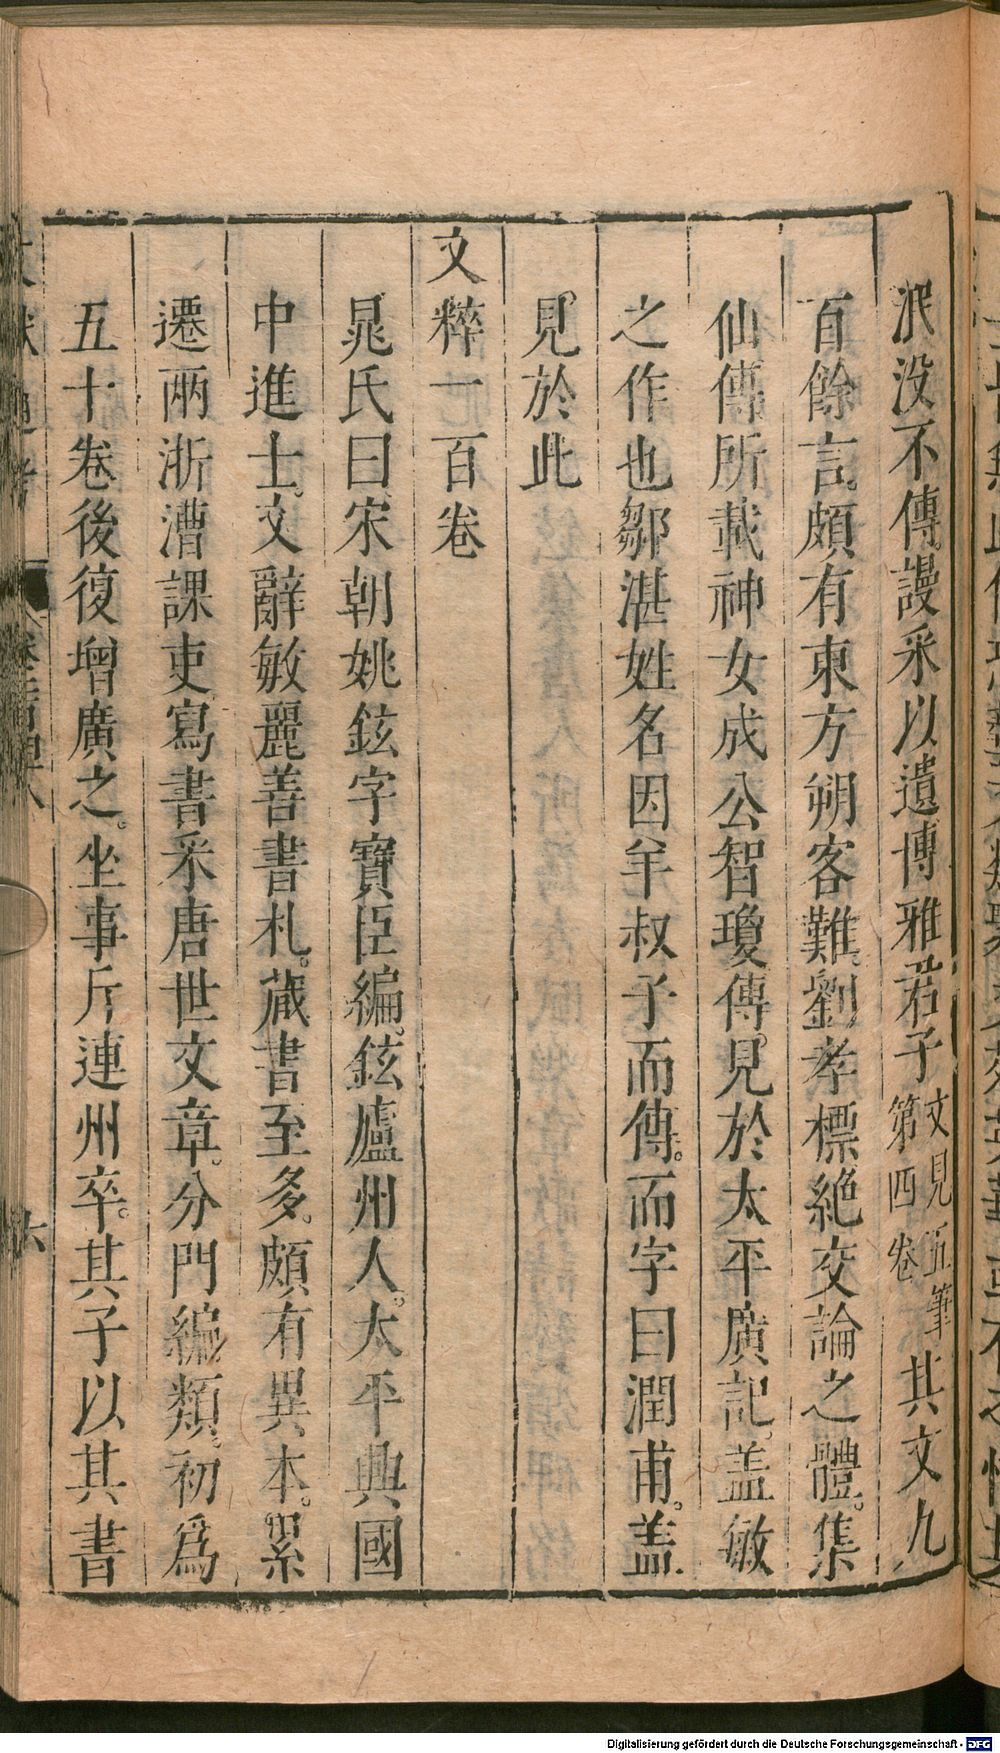 泯没不傳謾采以遺博雅君子文見五筆第四卷其文九
百餘言頗有東方朔客難劉孝標絶交論之體集
仙傳所載神女成公智瓊傳見於太平廣記盖敏
之作也鄒湛姓名因羊叔子而傳而字曰潤甫盖
見於此
文粹一百卷
晁氏曰宋朝姚鉉字寶臣編鉉廬州人太平興國
中進士文辭敏麗善書札藏書至多頗有異本累
遷兩浙漕課吏寫書采唐世文章分門編類初爲
五十卷後復增廣之坐事斥連州卒其子以其書
六
Digitalisierung gefördert durch die Deutsche Forschungsgemeinschaft - DFG